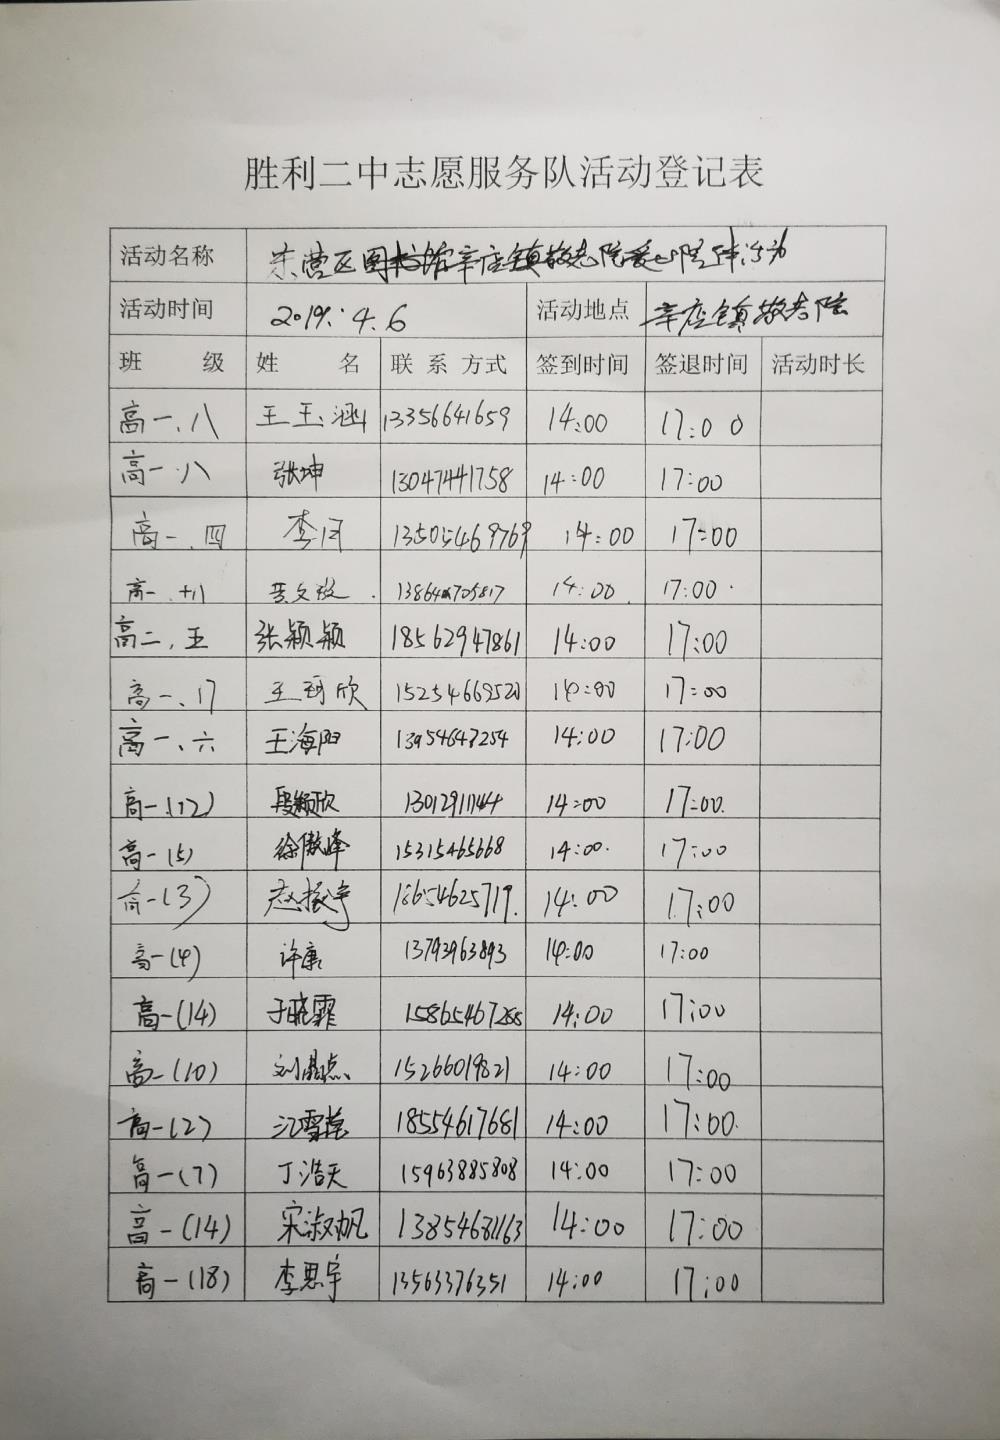 胜利二中志愿服务队活动登记表
活动名称 东营区图书馆辛店镇敬老院爱心陪伴活动
活动时间 2019.4.6 活动地点 辛店镇敬老院
班 级 姓 名 联 系 方式 签到时间 签退时间 活动时长
高一、八 王玉涵 13356641659 14:00 17:00
高一·八 张坤 13047441758 14:00 17:00
高一、四 李月 13505469769 14:00 17:00
高一、十八 14:00 17:00
高二、五 张颖颖 18562947861 14:00 17:00
高一、17 王珂欣 15254669520 14:00 17:00
高一、六 王海阳 13954647254 14:00 17:00
高一(12) 段颖欣 13012911144 14:00 17:00
高一(5) 徐傲峰 15315465668 14:00 17:00
高一(3) 赵振宇 18654625719 14:00 17:00
高一(4) 许康 13793963893 14:00 17:00
高一(14) 于晓霏 15865467288 14:00 17:00
高一(10) 15266019821 14:00 17:00
高一(2) 江雪莹 18554617681 14:00 17:00
高一(7) 丁浩天 15963885808 14:00 17:00
高一(14) 宋淑帆 13854681163 14:00 17:00
高一(18) 李思宇 13563376351 14:00 17:00